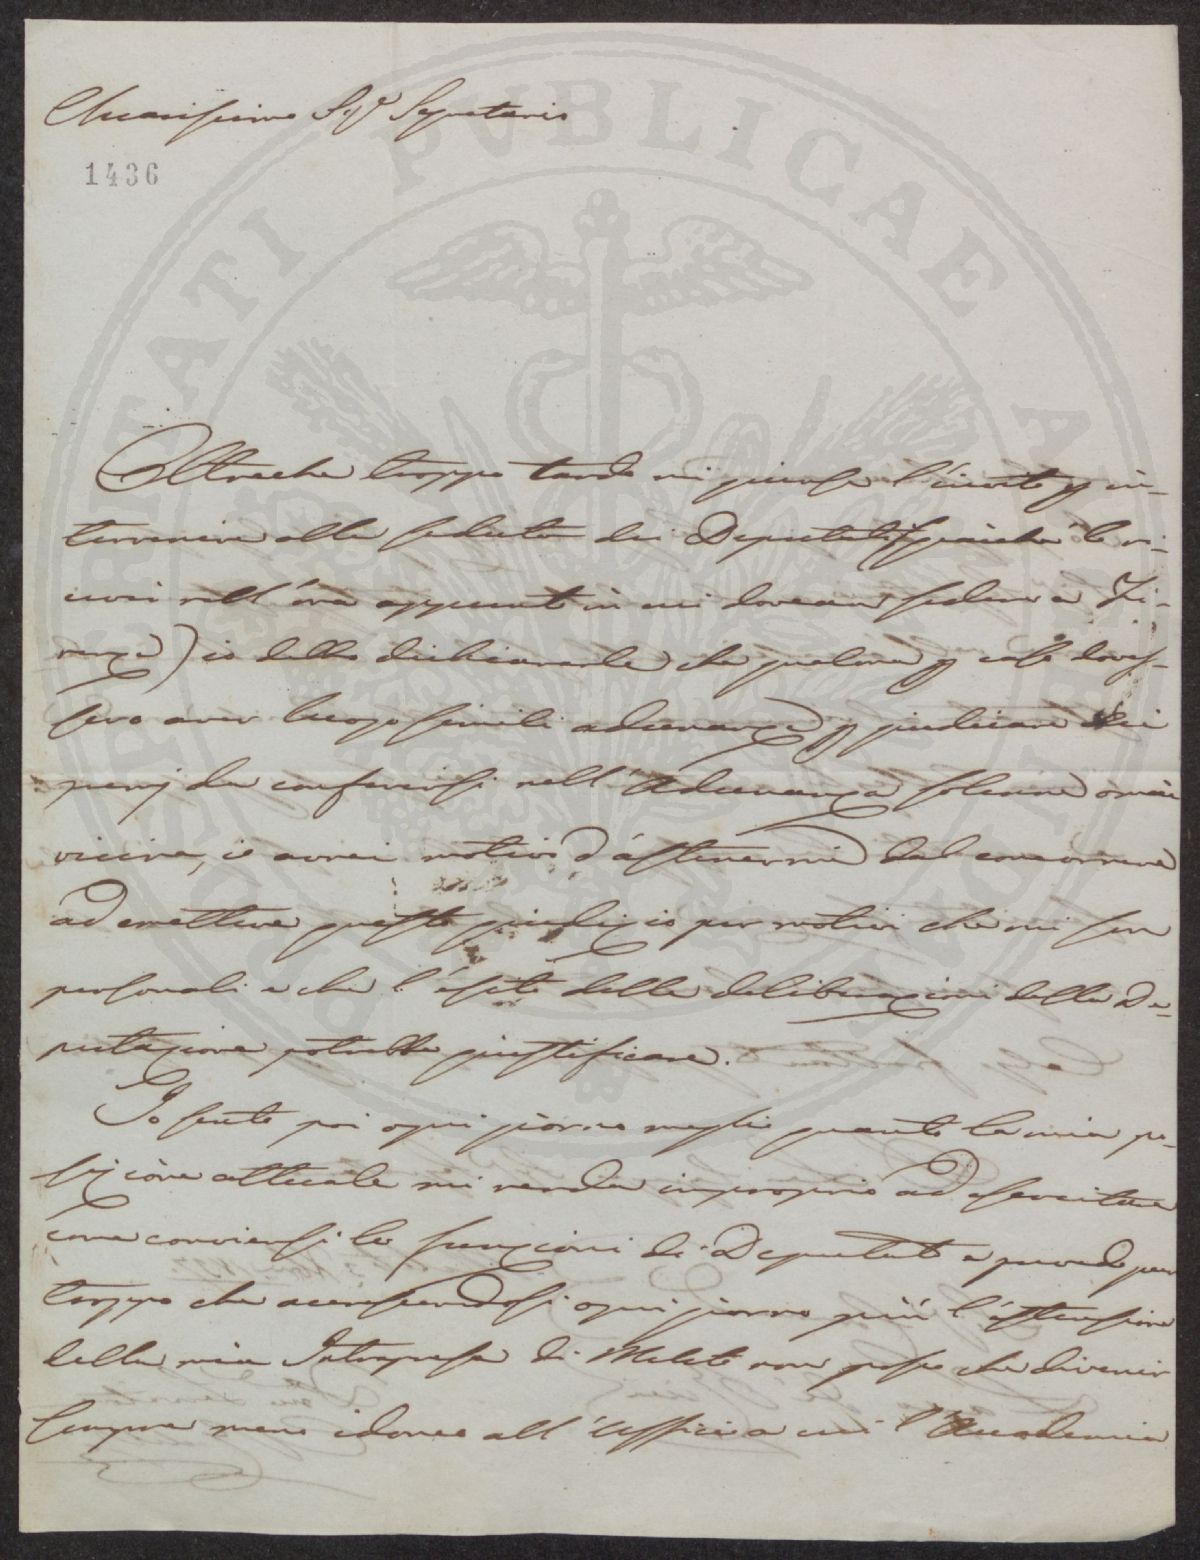 Chiarissimo Sigr Segretario
1436
PROSPERITATI PVBLICAE AVGENDAE
Oltreche troppo tardi mi giunse l'invito p in-
tervenire alla seduta dei Deputati (giaichè lo ri-
cevei nell'ora appunto in cui dovean sedere a Fi-
renze) io debbo dichiararle che qualora p caso doves-
sero aver luogo simili adunanze p giudicare dei
premj da conferirsi nell'Adunanza solenne omai
vicina, io avrei motivo d'astenermi dal concorrere
ad emettere questo giudizio per motivi che mi son
personali e che l'esito delle deliberazioni della De-
putazione potrebbe giustificare.
Io sento poi ogni giorno meglio quanto la mia po-
sizione attuale mi renda improprio ad esercitare
come conviensi le funzioni di Deputato e prevedo pur
troppo che accrescendosi ogni giorno più l'estensione
della mia Intrapresa di Meleto non posso che divenir
sempre meno idoneo all'ufficio a cui l'Accademia